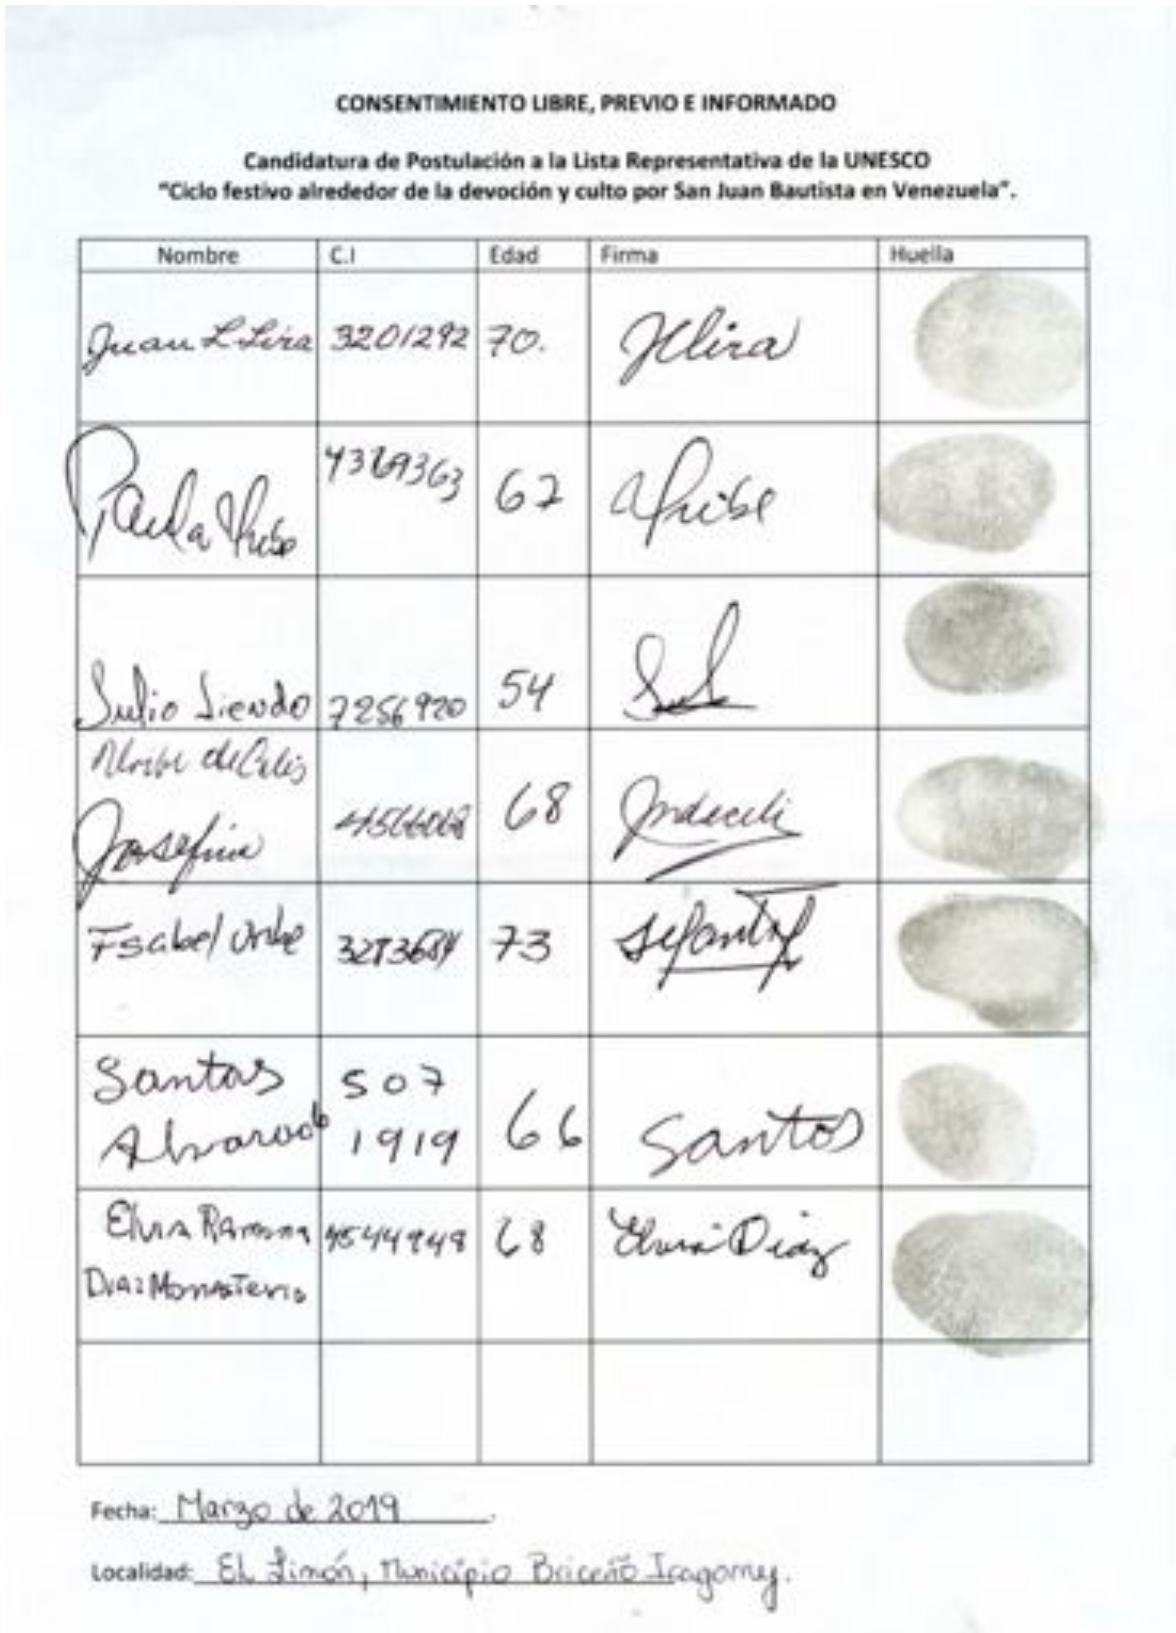 CONSENTIMIENTO LIBRE, PREVIO E INFORMADO
Candidatura de Postulación a la Lista Representativa de la UNESCO
"Ciclo festivo alrededor de la devoción y culto por San Juan Bautista en Venezuela".
Nombre C.I Edad Firma Huella
Juan L Lira 3201292 70. JLlira
Paula Uribe 67 Uribe
Julio Liendo 7256920 54
de Celis
Josefina 68
Isabel Uribe 73
Santos 507
Alvarado 1919 66 Santos
Elvia Ramona 4544948 68 Elvia Díaz
Diaz Monasterio
Fecha: Marzo de 2019.
Localidad: El Limón, Municipio Briceño Iragorry.